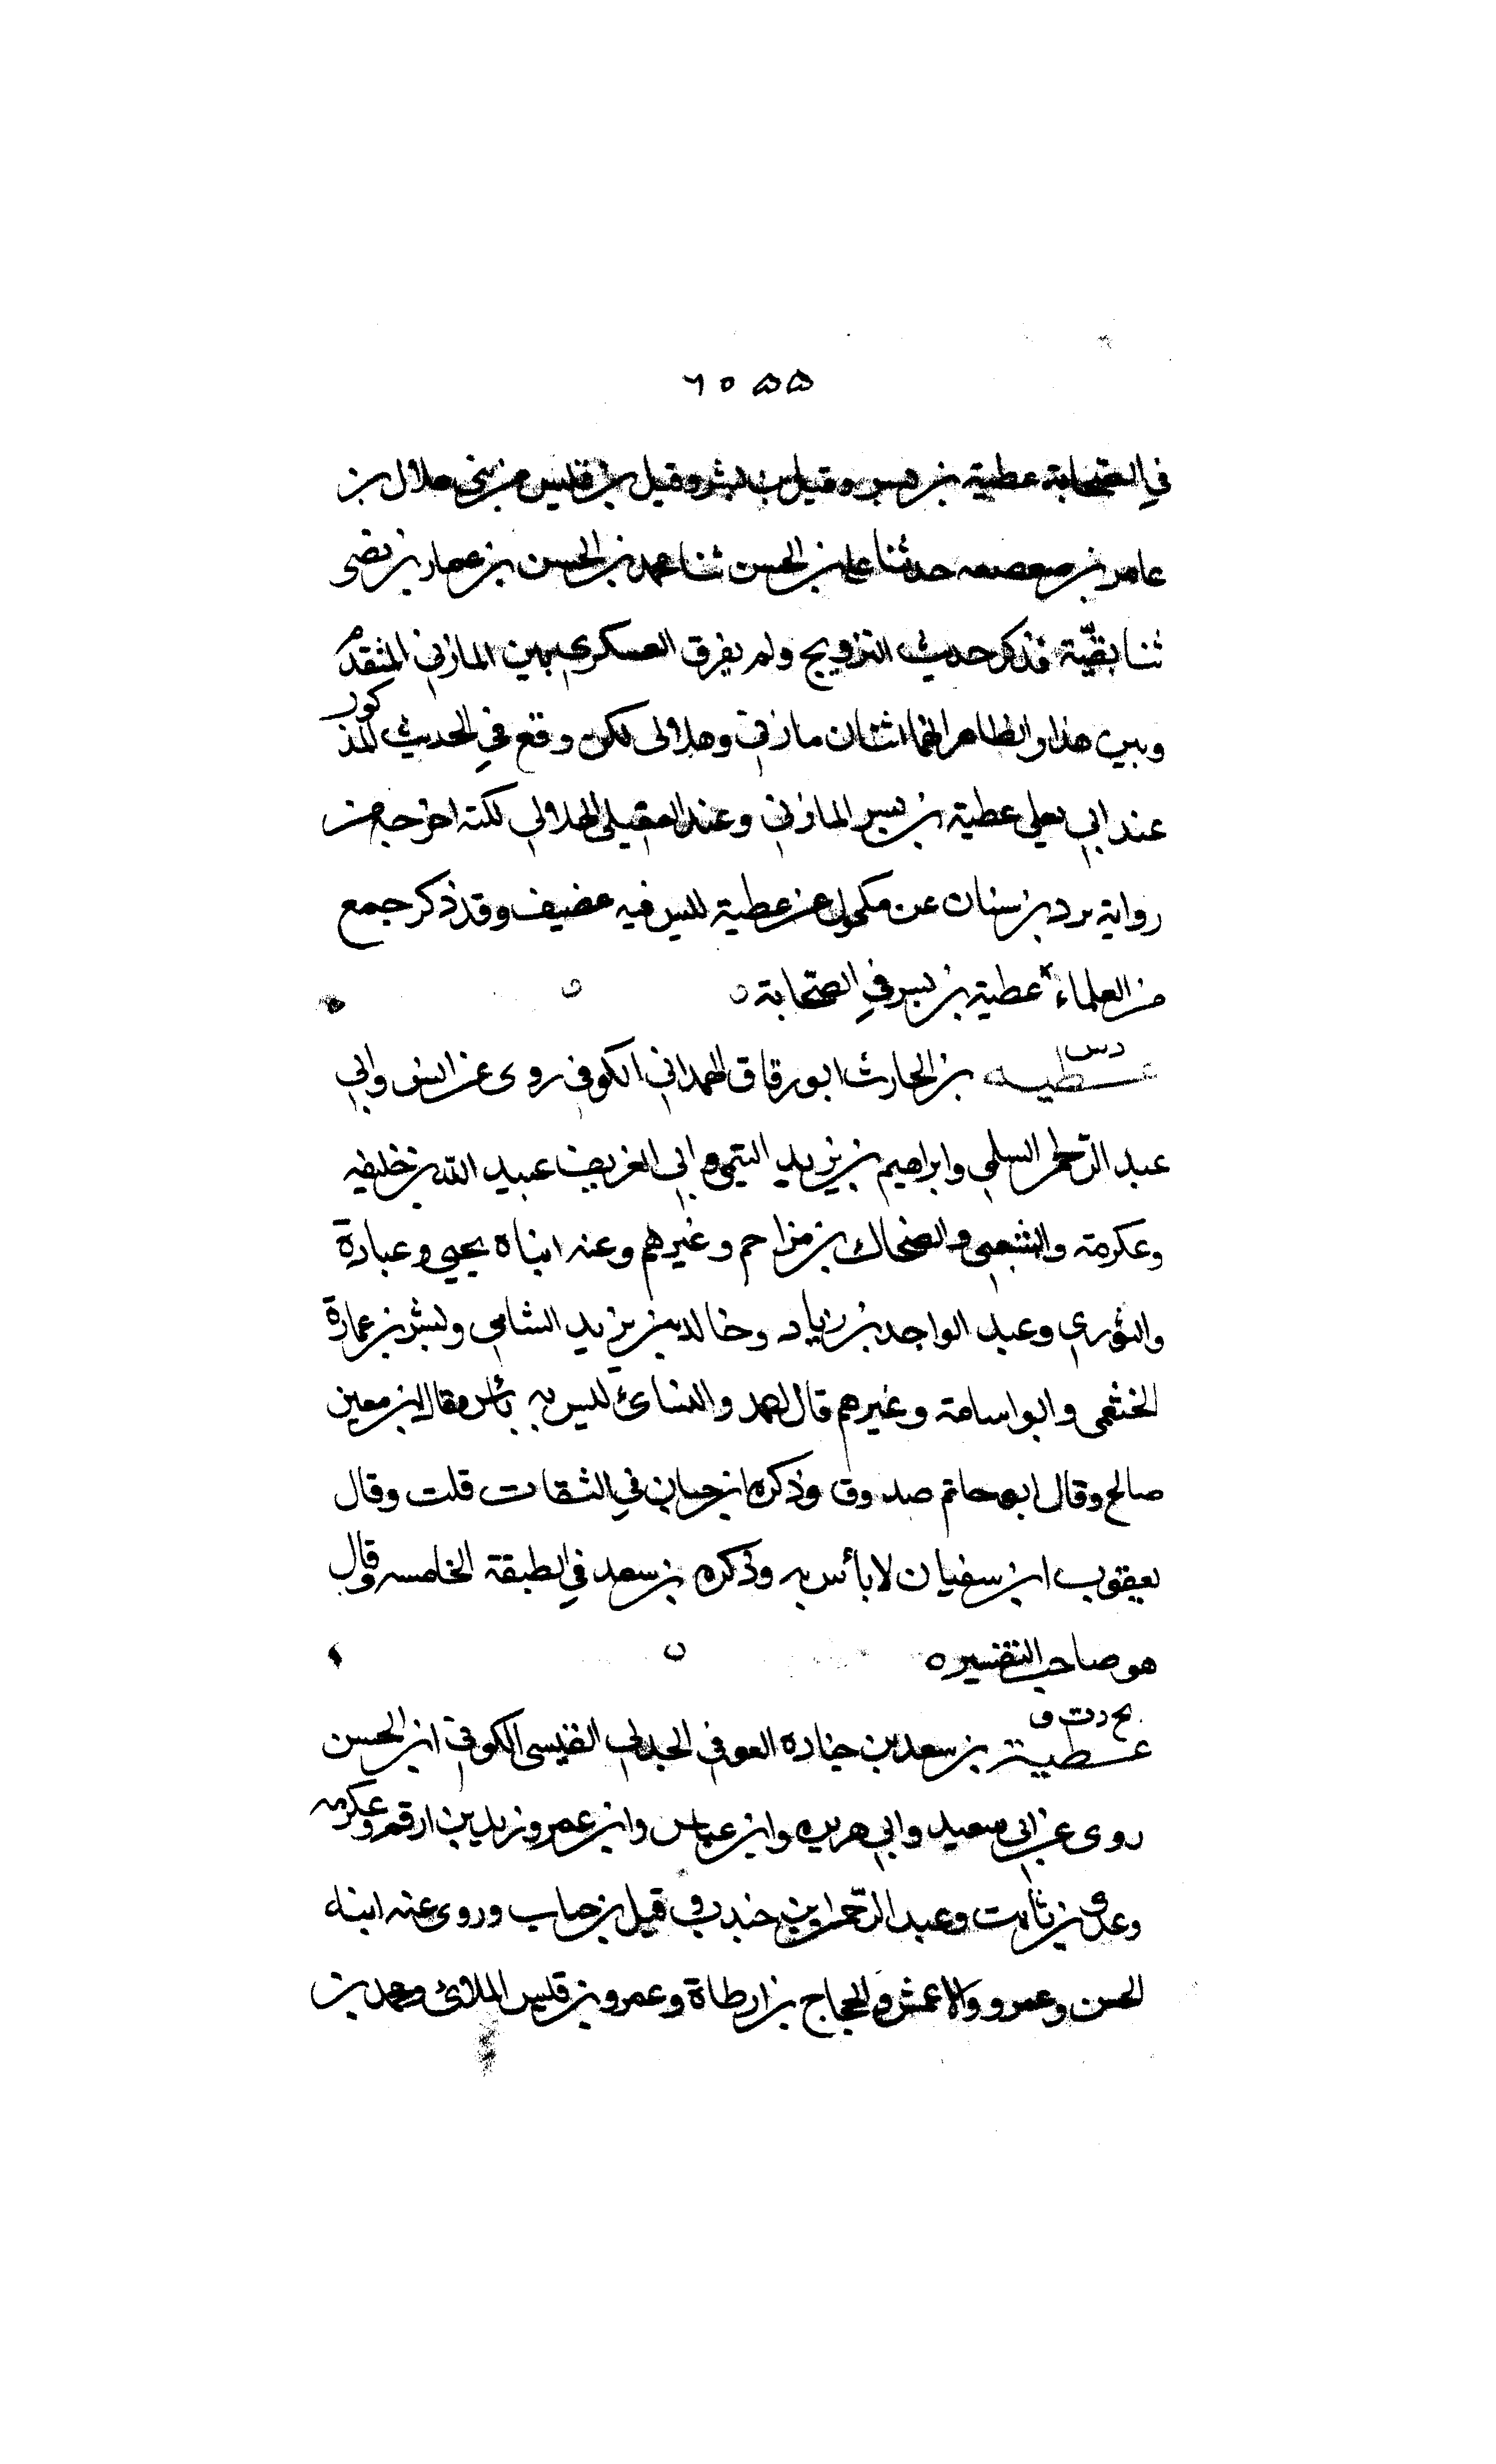 ٦٠٥٥
في الصحابة عطية بن بسر وقيل بن بشر وقيل بن قليس من بني هلال بن
عامر بن صعصعه حدثنا علي بن الحسن ثنا محمد بن الحسن بن عمار بن
ثنا بقيّة فذكر حديث التزويج ولم يفرق العسكري بين المازني المتقدم
وبين هذا والظاهر انهما اثنان مازني وهلالى لكن وقع في الحديث المذكور
عند ابي يعلى عطية بن بسر المازني وعند العقيلى الهلالي لكنه اخرجه من
رواية برد بن سنان عن مكحول عن عطية لليس فيه عضيف وقد ذكر جمع
من العلماء عطية بن بسر في الصحابة ٥
دس
عطيه بن الحارث ابو رقاق الهمداني الكوفي روى عن انس وابي
عبد الرحمن السلمي وابراهيم بن يزيد التيمي وابي الغريف عبيد الله بن خليفه
وعكرمة والشعبي والضحاك بن مزاحم وغيرهم وعنه ابناه يحيى وعبادة
والثوري وعبد الواحد بن زياد وخالد بن يزيد الشامي وبشر بن عمارة
الخثعمى وابو اسامة وغيرهم قال احمد والنسائ ليس به بأس وقال ابن معين
صالح وقال ابو حاتم صدوق وذكره ابن حبان في الثقات قلت وقال
يعقوب ابن سفيان لا بأس به وذكره بن سعد في الطبقة الخامسه وقال
هو صاحب التفسير ٥
بخ د ت ق
عطية بن سعد بن جناده العوفي الجدلي القيسى الكوفي ابو الحسن
روى عن ابي سعيد وابي هريره وابن عباس وابن عمر وزيد بن ارقم وعكرمه
وعدي بن ثابت وعبد الرحمن بن جندب وقيل بن حباب وروى عنه ابناه
الحسن وعمرو والاعمش والحجاج بن ارطاة وعمرو بن قليس الملائى ومحمد بن